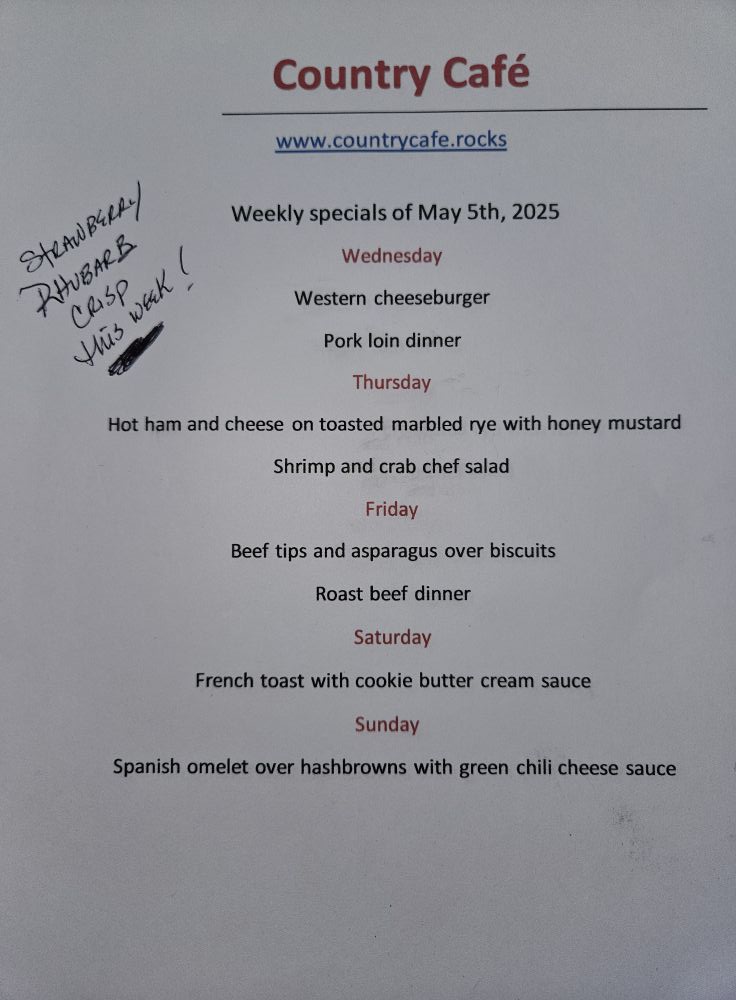 Country Café
www.countrycafe.rocks
STRAWBERRY
RHUBARB
CRISP
this WEEK!
Weekly specials of May 5th, 2025
Wednesday
Western cheeseburger
Pork loin dinner
Thursday
Hot ham and cheese on toasted marbled rye with honey mustard
Shrimp and crab chef salad
Friday
Beef tips and asparagus over biscuits
Roast beef dinner
Saturday
French toast with cookie butter cream sauce
Sunday
Spanish omelet over hashbrowns with green chili cheese sauce